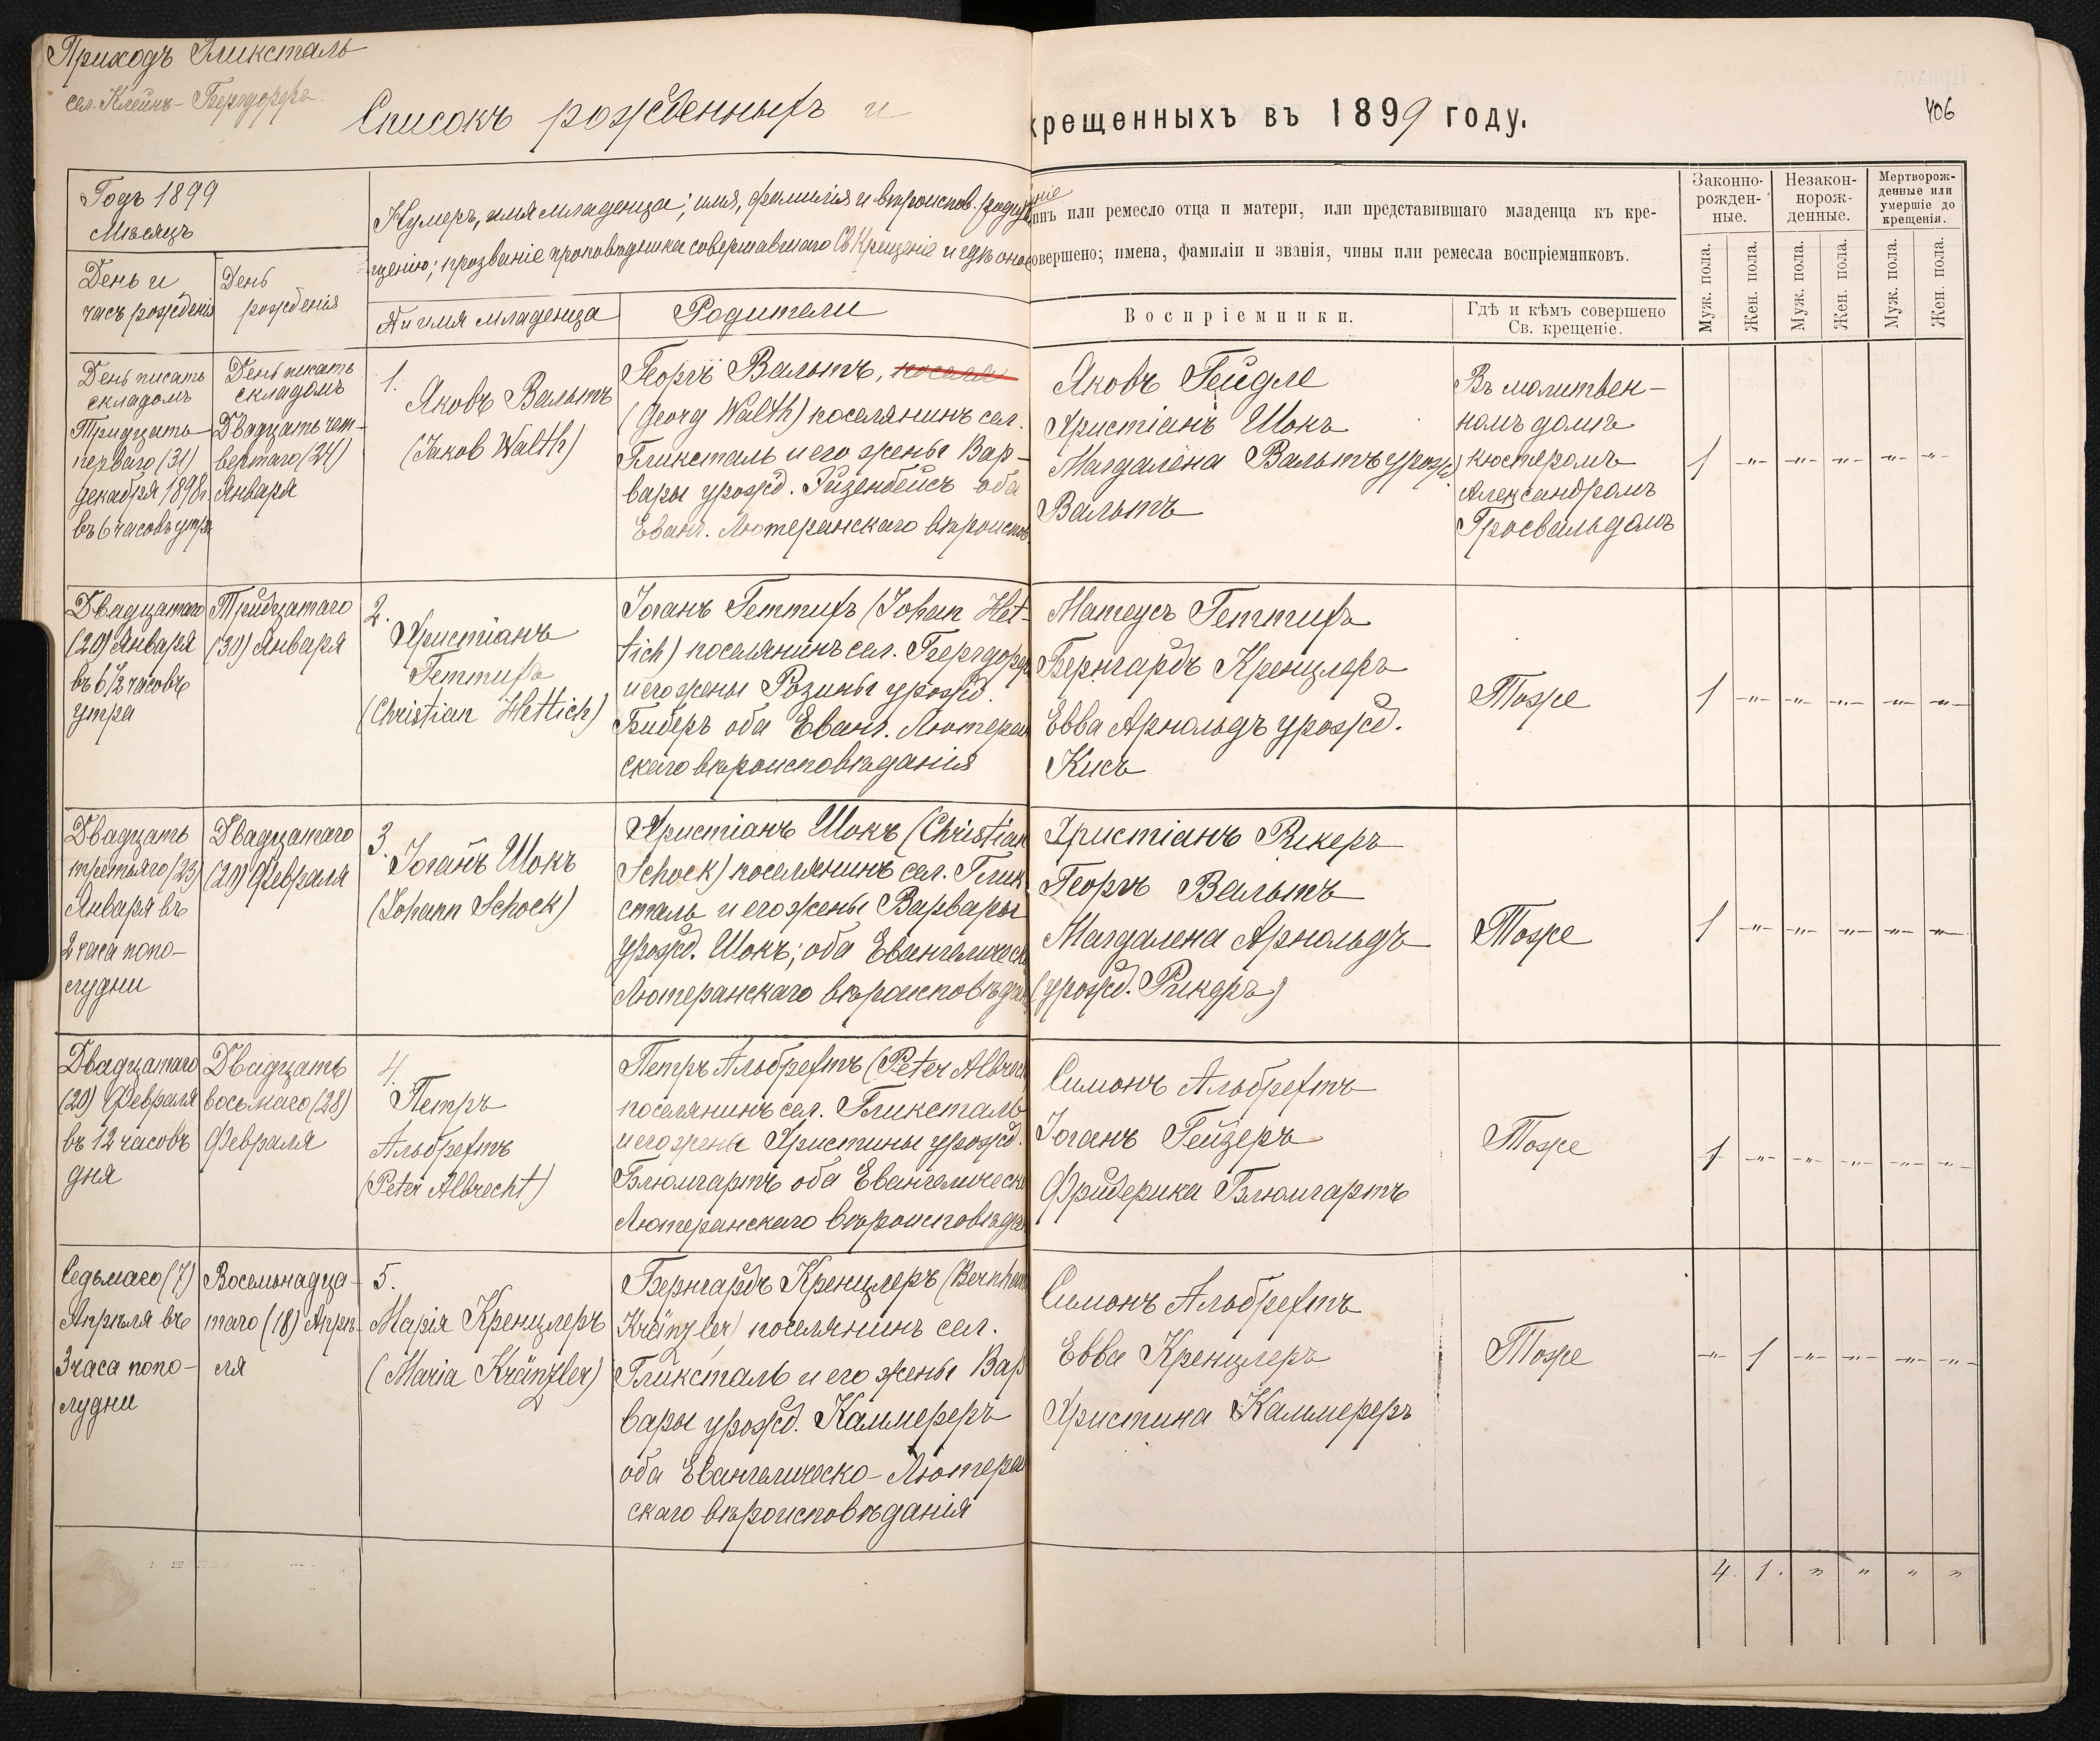 Приходъ Гликсталь
сел. Клейнъ-Бергдорфъ
Списокъ рожденныхъ и
крещенныхъ въ 1899 году.
406
Годъ 1899
Мѣсяцъ
День и
часъ рожденія
День
рожденія
Нумеръ, имя младенца; имя, фамилія и вѣроиспов.
щенію; прозваніе проповѣдника совершавшаго Св Крещеніе и гдѣ оное
№ и имя младенца
Родители
чинъ или ремесло отца и матери, или представившаго младенца къ кре-
совершено; имена, фамиліи и званія, чины или ремесла воспріемниковъ.
Воспріемники.
Гдѣ и кѣмъ совершено
Св. крещеніе.
Законно-
рожден-
ные.
Незакон-
норож-
денные.
Мертворож-
денные или
умершіе до
крещенія.
Муж. пола.
Жен. пола.
Муж. пола.
Жен. пола.
Муж. пола.
Жен. пола.
День писать
складомъ
Тридцать
перваго (31)
Декабря 1898г
въ 6 часовъ утра
День писать
складомъ
Двадцать чет-
вертаго (24)
Января
1.
Яковъ Вальтъ
(Jakob Walth)
Георгъ Вальтъ,
(Georg Walth) поселянинъ сел.
Гликсталь и его жены Вар-
вары урожд. Гизенбейсъ оба
Еванг. Лютеранскаго вѣроиспов
Яковъ Гейдле
Христіанъ Шокъ
Магдалена Вальтъ урожд
Вальтъ
Въ молитвен-
номъ домѣ
кюстеромъ
Александромъ
Гросвальдомъ
1 -"- -"- -"- -"- -"-
Двадцатаго
(20) Января
въ 6 1/2 часовъ
утра
Тридцатаго
(30) Января
2.
Христіанъ
Геттихъ
(Christian Hettich)
Іоганъ Геттихъ (Johan Het-
tich) поселянинъ сел. Бергдорфъ
и его жены Розины урожд.
Биберъ оба Еванг. Лютеран
скаго вѣроисповѣданія
Матеусъ Геттихъ
Бернгардъ Кренцлеръ
Евва Арнольдъ урожд.
Кисъ
Тоже
1 -"- -"- -"- -"- -"-
Двадцать
третьяго (23)
Января въ
2 часа попо-
лудни
Двадцатаго
(20) Февраля
3.
Іоганъ Шокъ
(Johann Schock)
Христіанъ Шокъ (Christian
Schock) поселянинъ сел. Глик
сталь и его жены Варвары
урожд. Шокъ; оба Евангелическ
Лютеранскаго вѣроисповѣдан
Христіанъ Рикеръ
Георгъ Вальтъ
Магдалена Арнольдъ
(урожд. Рикеръ)
Тоже
1 -"- -"- -"- -"- -"-
Двадцатаго
(20) Февраля
въ 12 часовъ
дня
Двадцать
восьмаго (28)
Февраля
4.
Петръ
Альбрехтъ
(Peter Albrecht)
Петръ Альбрехтъ (Peter Albrech
поселянинъ сел. Гликсталь
и его жены Христины урожд.
Блюмгартъ оба Евангелическ
Лютеранскаго вѣроисповѣдан
Симонъ Альбрехтъ
Іоганъ Гейзеръ
Фридерика Блюмгартъ
Тоже
1 -"- -"- -"- -"- -"-
Седьмаго (7)
Апрѣля въ
3 часа попо-
лудни
Восемьнадца-
таго (18) Апрѣ-
ля
5.
Марія Кренцлеръ
(Maria Kränzler)
Бернгардъ Кренцлеръ (Bernhar
Kränzler) поселянинъ сел.
Гликсталь и его жены Вар
вары урожд. Каммереръ
оба Евангелическо-Лютеран
скаго вѣроисповѣданія
Симонъ Альбрехтъ
Евва Кренцлеръ
Христина Каммереръ
Тоже
-"- 1 -"- -"- -"- -"-
4. 1. " " " "